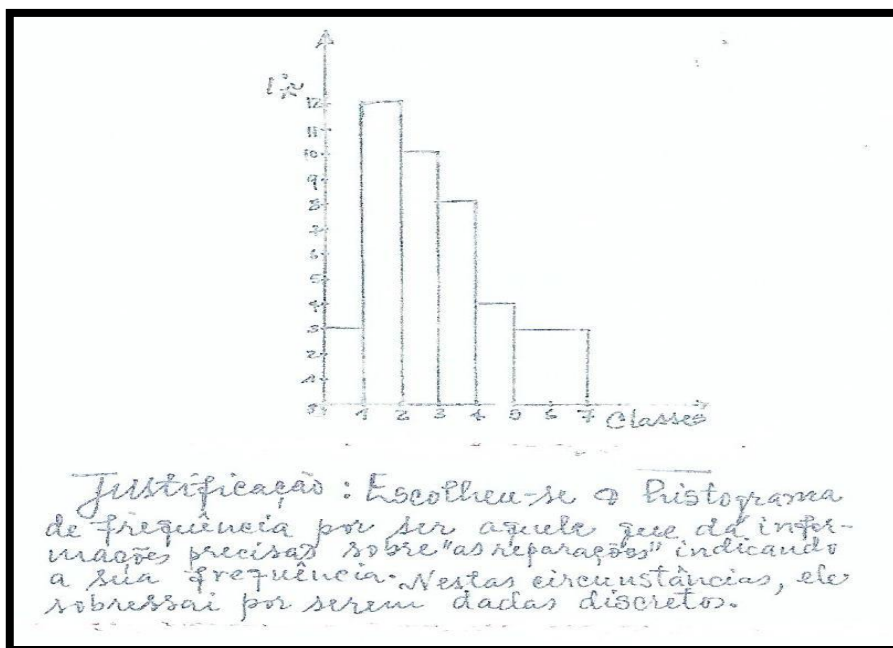 12
11
10
9
8
7
6
5
4
3
2
1
0 1 2 3 4 5 6 7 Classes
Justificação: Escolheu-se o histograma
de frequência por ser aquele que dá infor-
mações precisas sobre "as reparações" indicando
a sua frequência. Nestas circunstâncias, ele
sobressai por serem dadas discretos.